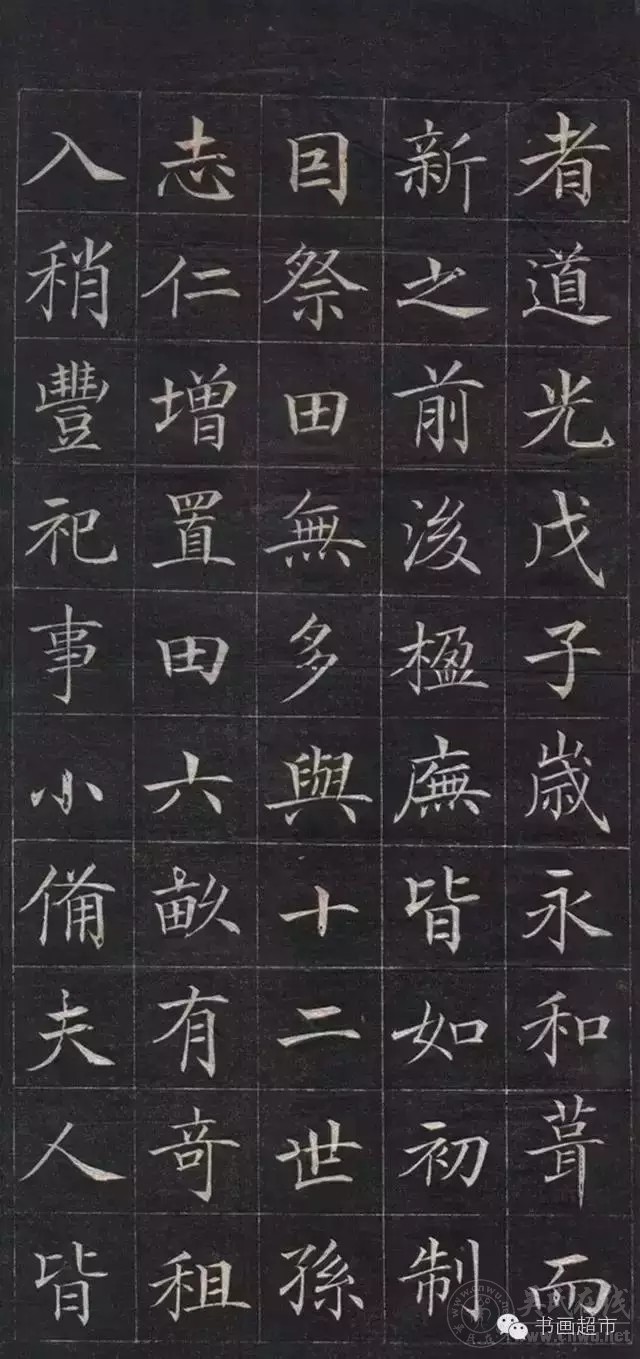 者道光戊子嵗永和葺而
新之前後楹廡皆如初制
因祭田無多與十二世孫
志仁增置田六畝有奇租
入稍豐祀事小備夫人皆
书画超市